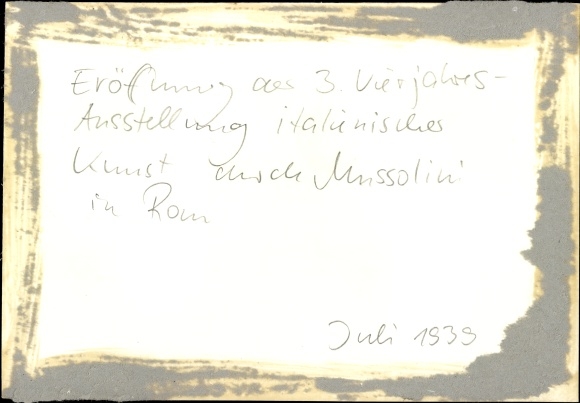 Eröffnung der 3. Vierjahres-
Ausstellung italienischer
Kunst durch Mussolini
in Rom
Juli 1939